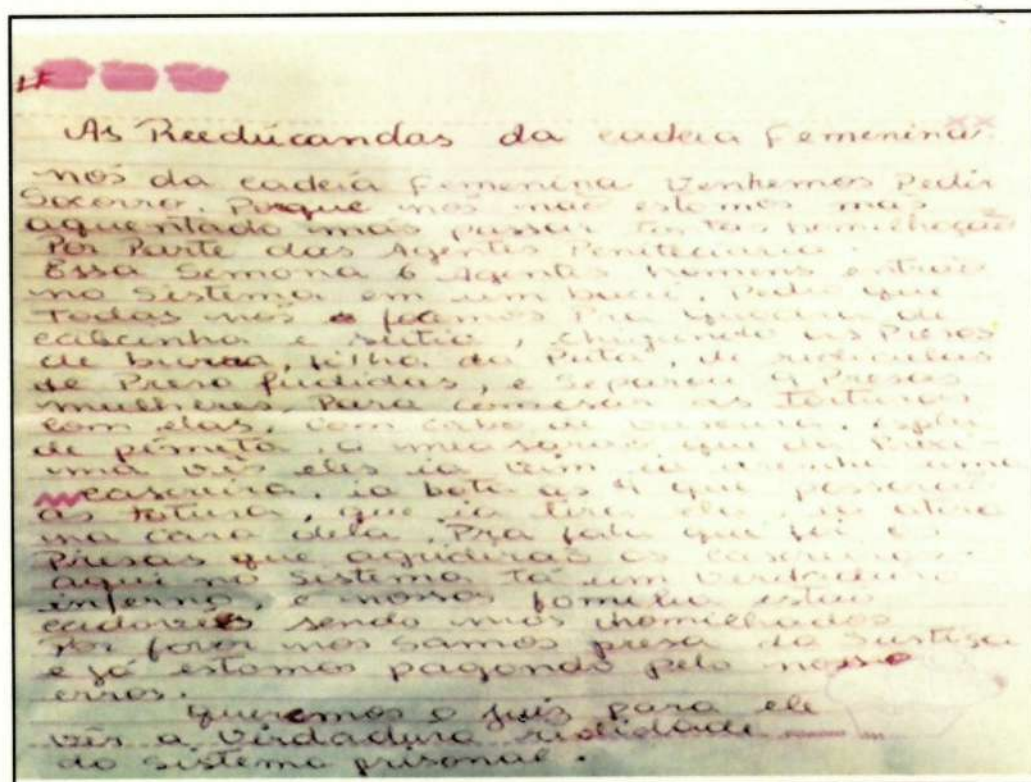 As Reeducandas da cadeia femenina.
nós da cadeia femenina venhemos Pedir
Socorro. Porque nós não estamos mas
aguentado mas passar tantas homilhação
Por Parte das Agentes Peniteciaria.
Essa Semana 6 Agentes homens entrou
no Sistema em um, Pedio que
Todas nós de
calcinha e sutia, chingando as Presas
de burra, filha da Puta, de ridiculas
de Presa fudidas, e Separou 9 Presas
mulheres, Para comesar as torturas
com elas, com cabo de vasoura, espre
de pimeta, a que da Proxi-
ma vês eles ia vim ia
caseira, ia bota as 9 que
as totura, que ia tira ela, ia atira
na cara dela, Pra fala que foi a
Presas que
aqui no sistema tá um verdadeiro
inferno, e nossos familia estão
cadaveis sendo mas homilhados
Por favor nós samos presa da Justiça
e já estamos pagando pelo nosso
erros.
Queremos o juiz para ele
vêr a verdadeira realidade
do sistema prisonal.